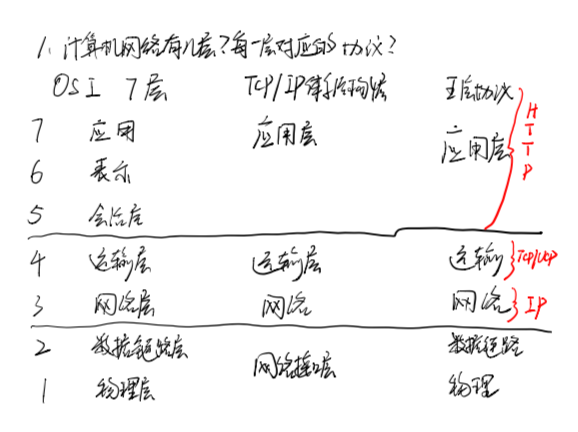 1、计算机网络有几层?每一层对应的协议?
OSI 7层 TCP/IP体系结构 五层协议
7 应用 应用层 应用层 HTTP
6 表示
5 会话层
4 运输层 运输层 运输 TCP/UCP
3 网络层 网络 网络 IP
2 数据链路层 网络接口层 数据链路
1 物理层 物理